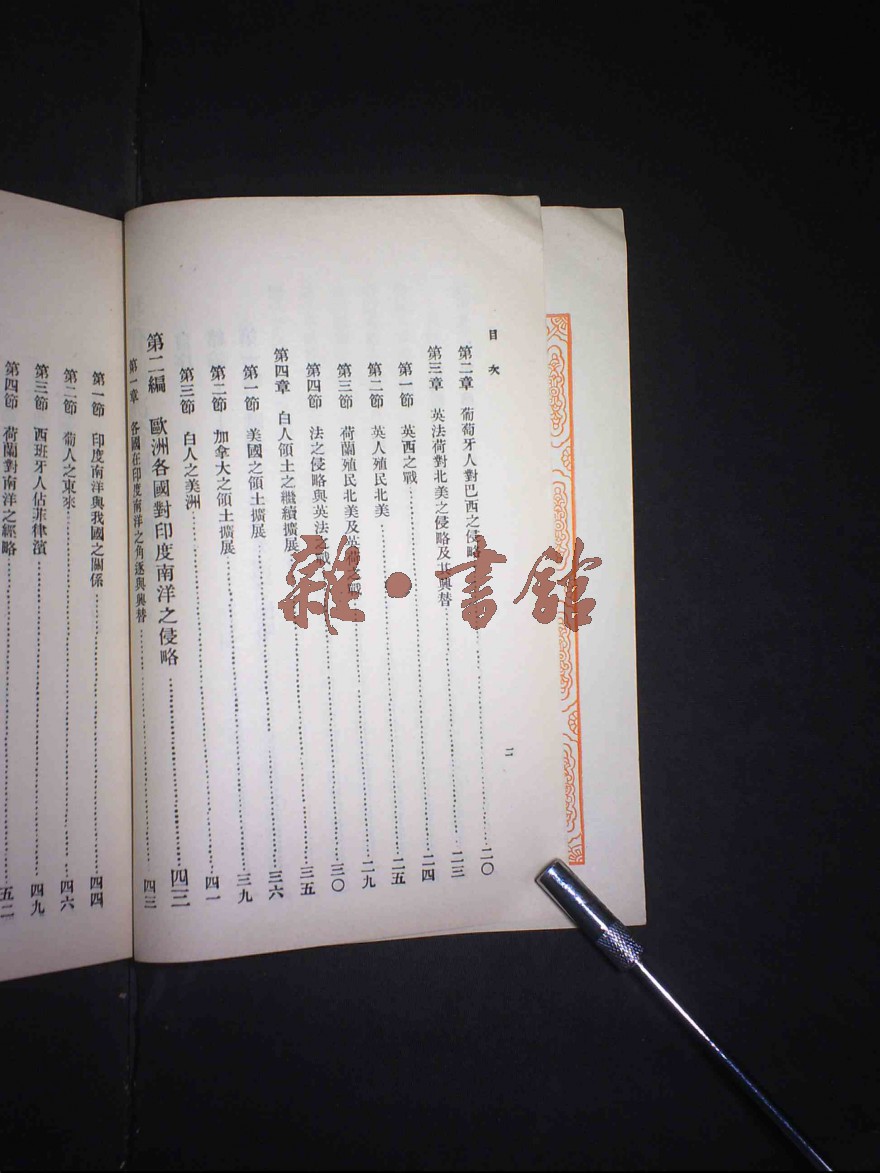 目次
二
第二章 葡萄牙人對巴西之侵略……二〇
第三章 英法荷對北美之侵略及其興替……二三
第一節 英西之戰……二四
第二節 英人殖民北美……二五
第三節 荷蘭殖民北美及英荷之戰……二九
第四節 法之侵略與英法之戰……三〇
第四章 白人領土之繼續擴展……三五
第一節 美國之領土擴展……三六
第二節 加拿大之領土擴展……三九
第三節 白人之美洲……四一
第二編 歐洲各國對印度南洋之侵略……四三
第一章 各國在印度南洋之角逐與興替……四三
第一節 印度南洋與我國之關係……四四
第二節 葡人之東來……四六
第三節 西班牙人佔菲律濱……四九
第四節 荷蘭對南洋之經略……五二
雜·書館